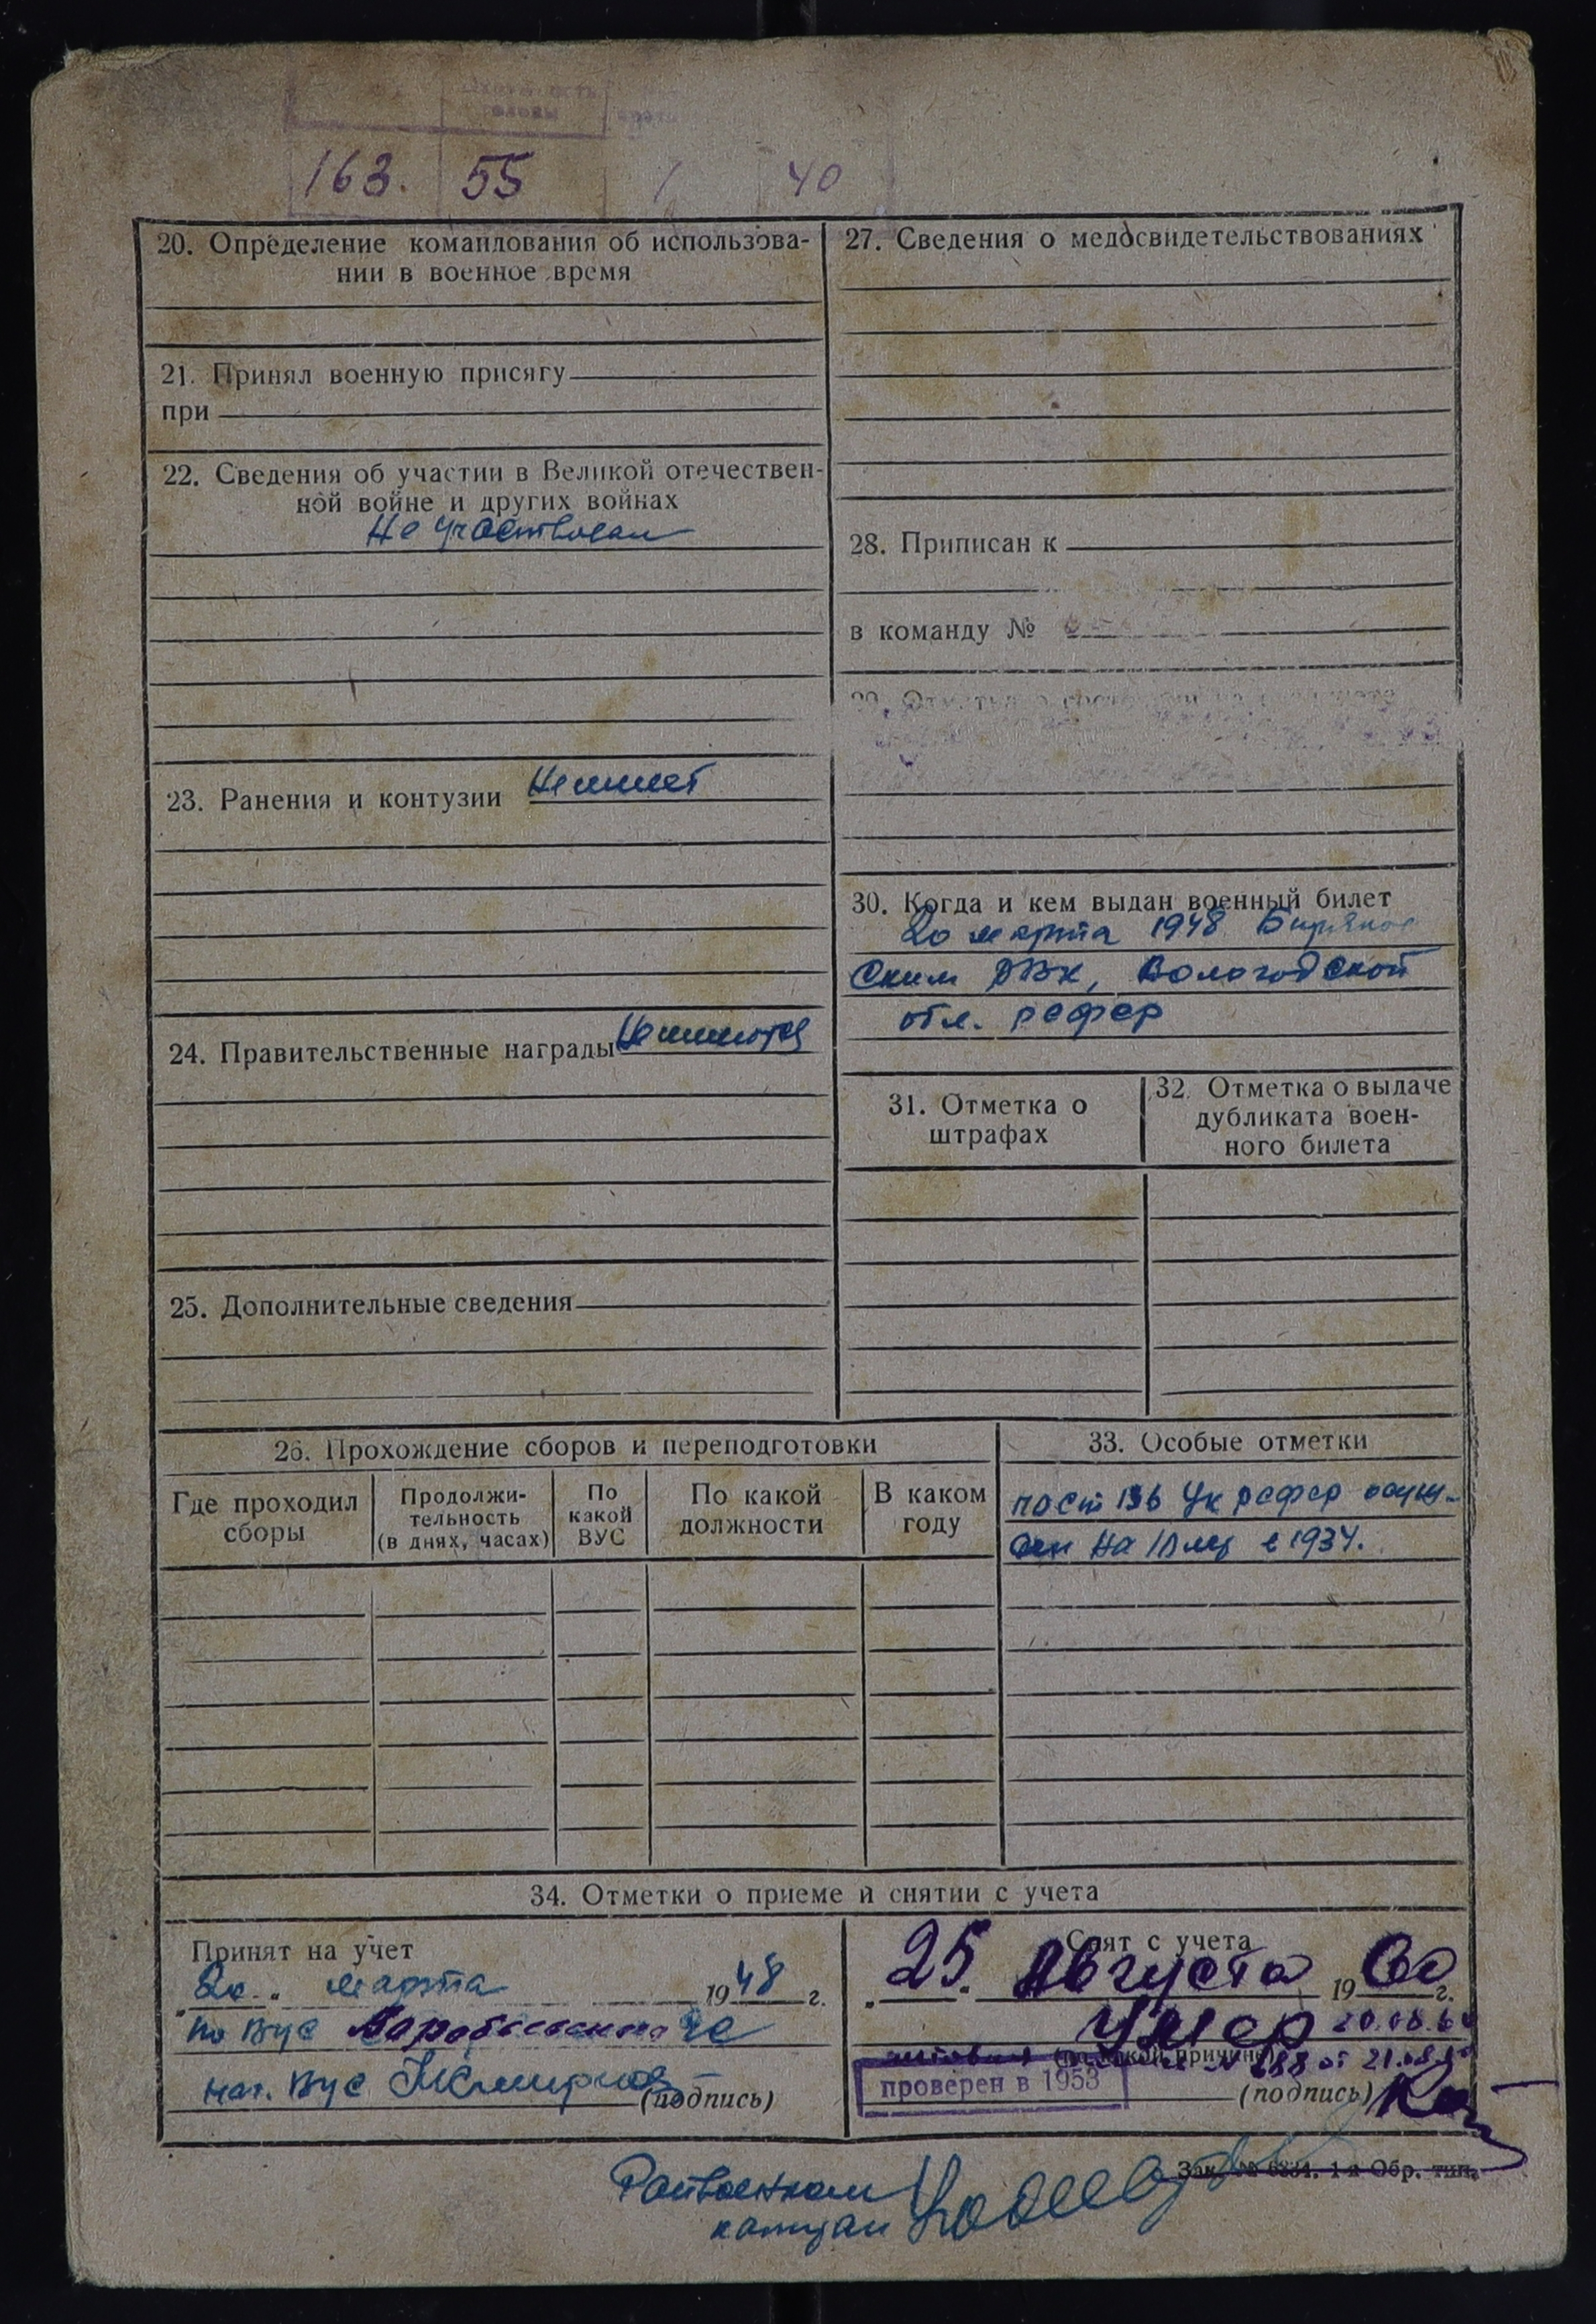 163. 55 1 40
20. Определение командования об использова-
нии в военное время
21. Принял военную присягу
при
22. Сведения об участии в Великой отечествен-
ной войне и других войнах
Не участвовал
23. Ранения и контузии Не имеет
24. Правительственные награды Не имеются
25. Дополнительные сведения
27. Сведения о медосвидетельствованиях
28. Приписан к
в команду №
30. Когда и кем выдан военный билет
20 марта 1948
ским РВК, Вологодской
обл. рсфср
31. Отметка о
штрафах
32. Отметка о выдаче
дубликата воен-
ного билета
26. Прохождение сборов и переподготовки
Где проходил
сборы
Продолжи-
тельность
(в днях, часах)
По
какой
ВУС
По какой
должности
В каком
году
33. Особые отметки
по ст 136 Ук рсфср осуж-
ден на в 1934.
34. Отметки о приеме и снятии с учета
Принят на учет
"20" марта 1948 г.
по вус
нач. вус
(подпись)
Снят с учета
"25" Августа 1960 г.
Умер 20.08.60
(по какой причине)
№ 688 от 21.08.60
проверен в 1953
(подпись)
Зак. № 6334. 1-я Обр. тип.
Райвоенком
капитан